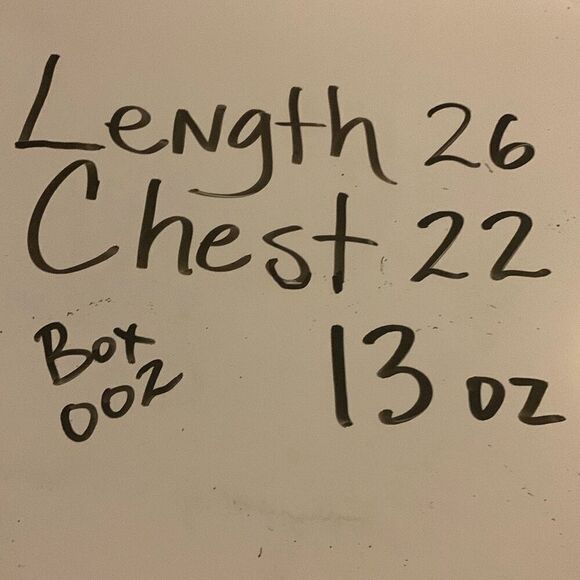 Length 26
Chest 22
Box
002
13 oz